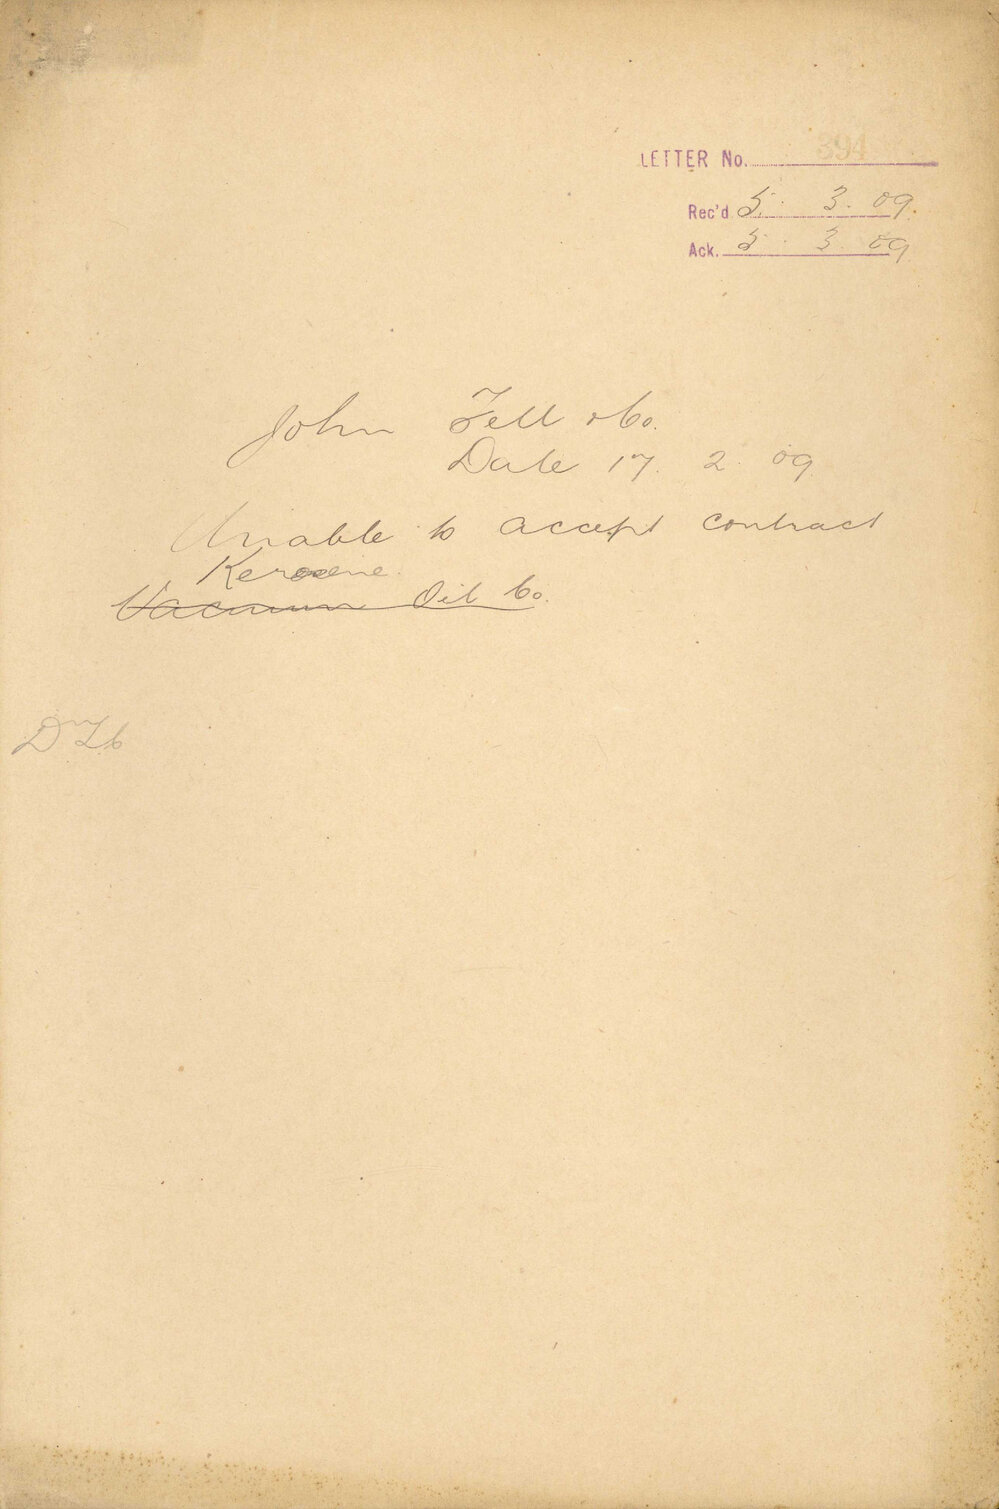 LETTER No. 394
Rec'd 5. 3. 09.
Ack. 5. 3. 09
John Fell & Co.
Date 17. 2. 09
Unable to accept contract
Kerosene
Vacuum Oil Co.